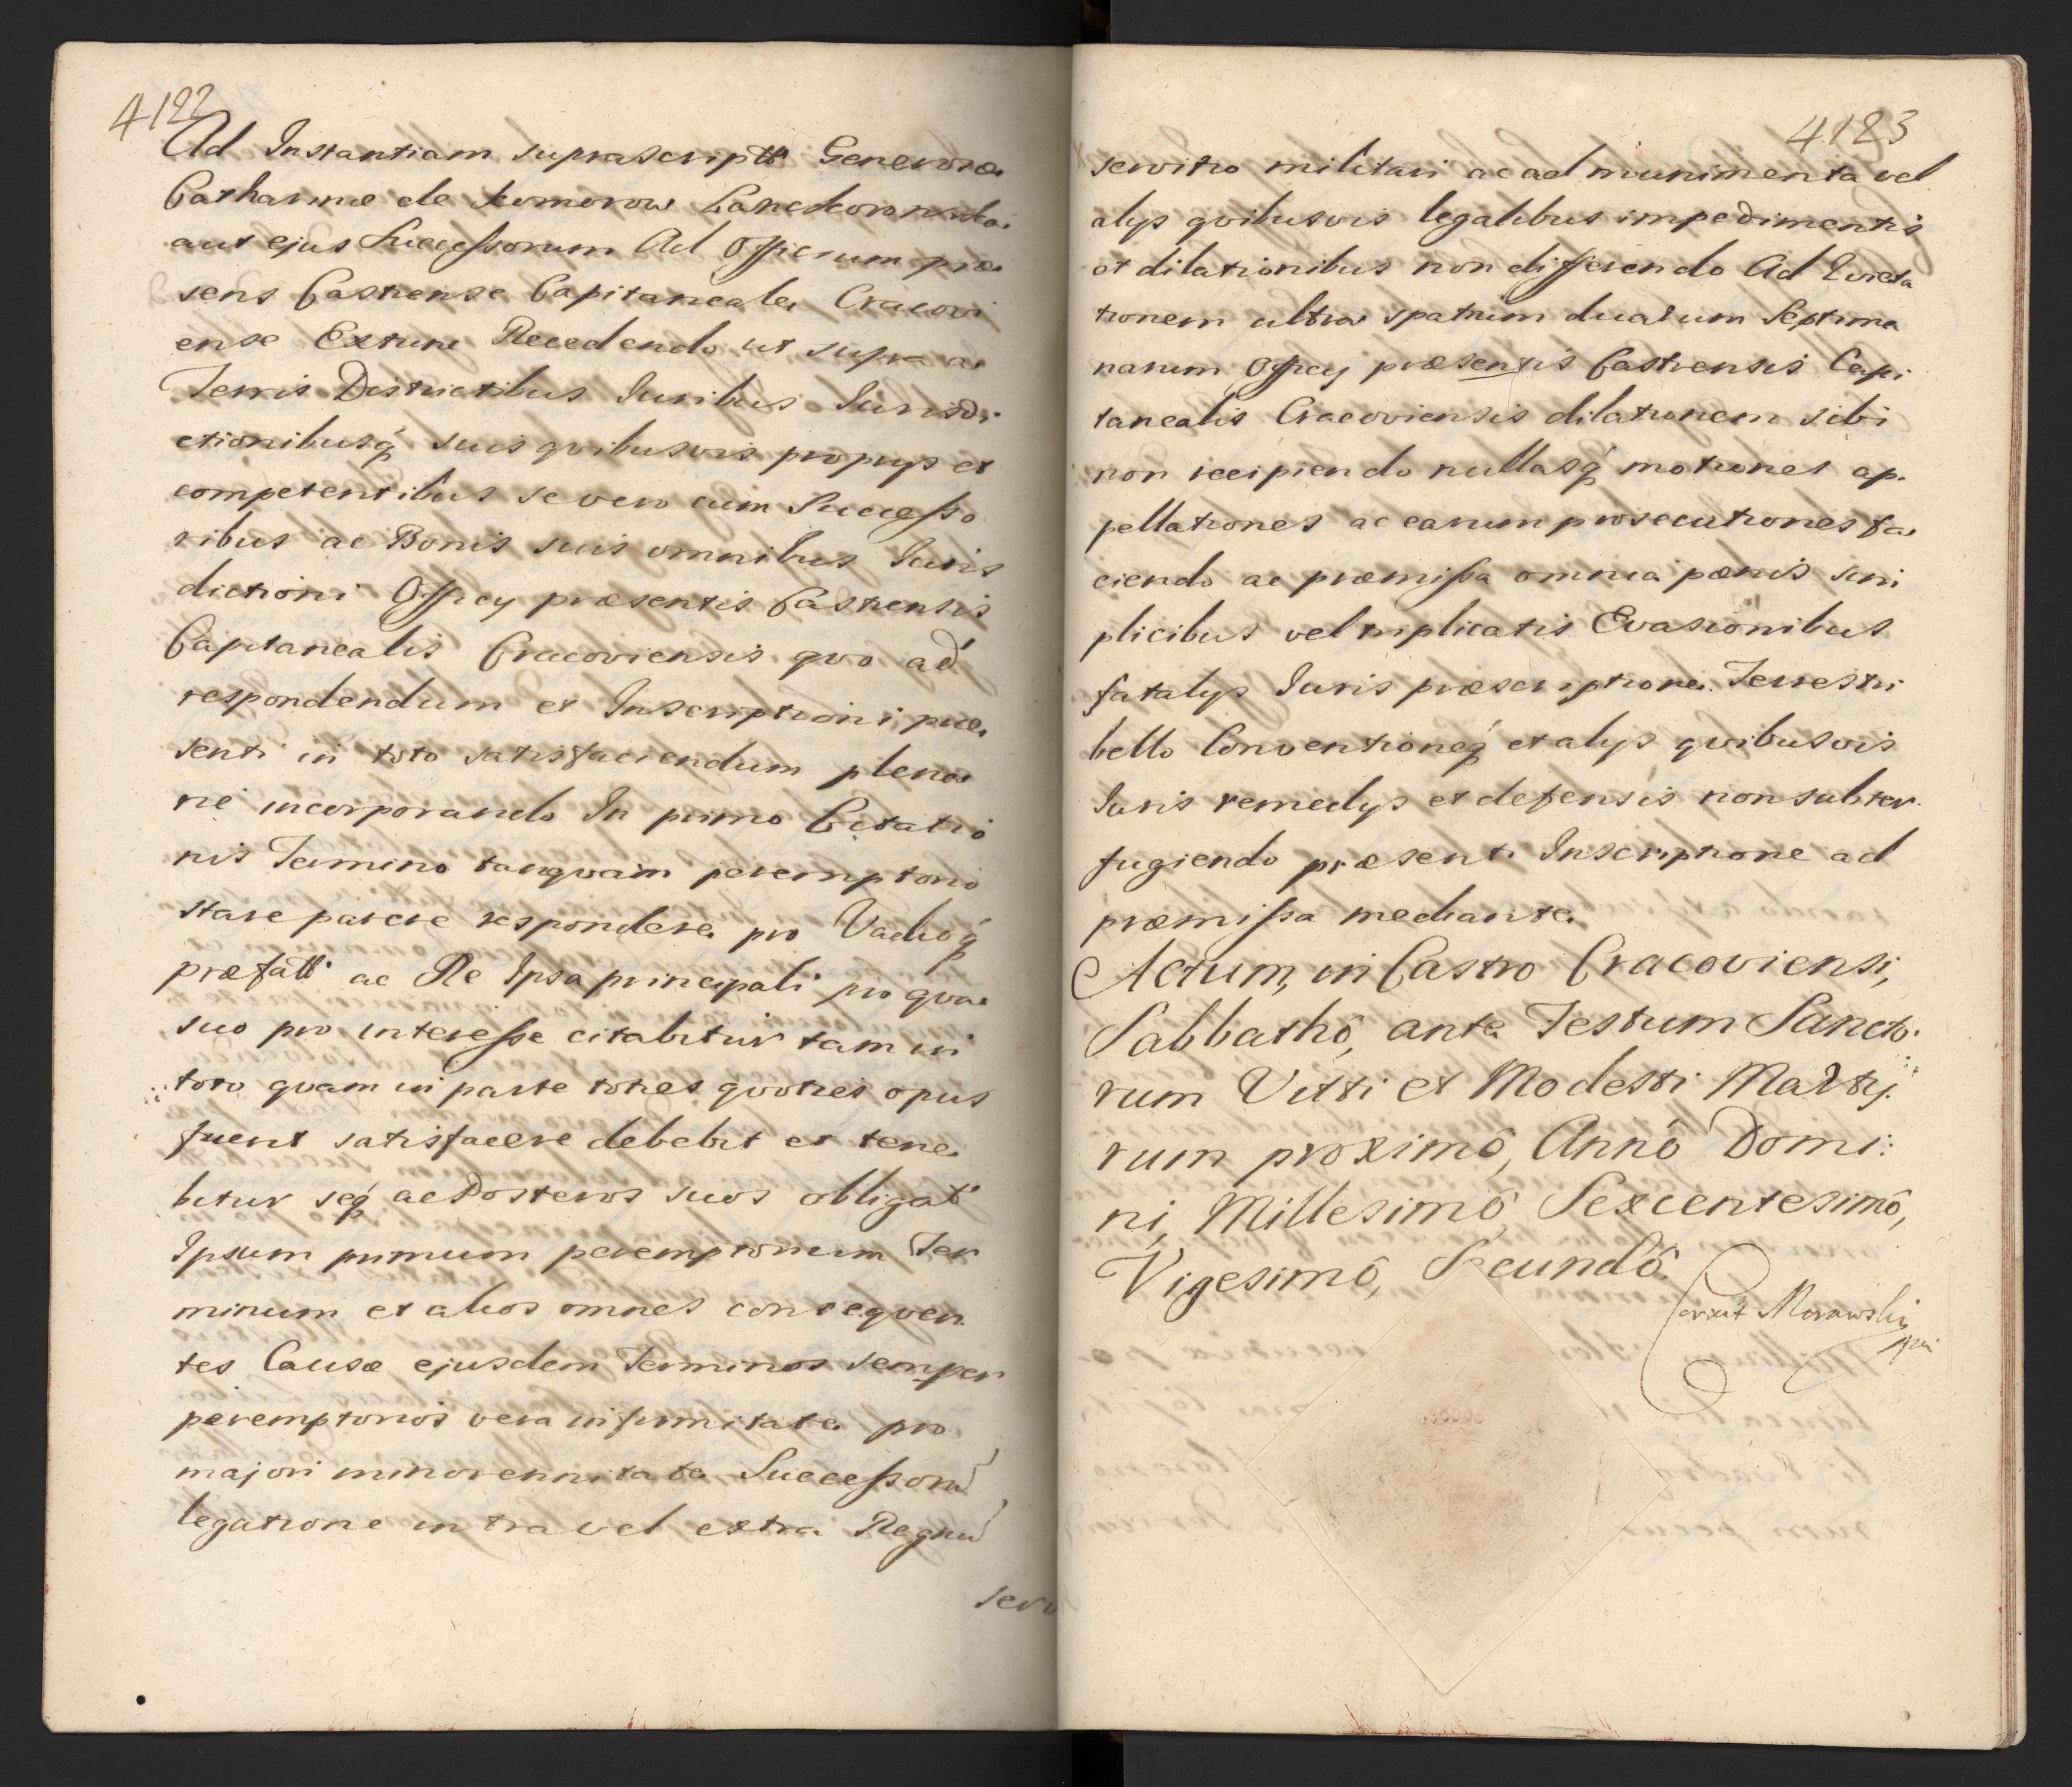 4122
Ad Instantiam suprascriptæ Generosæ
Catharinæ de Komorow Lanckoronska
aut ejus Successorum Ad Officium præ
sens Castrense Capitaneale Cracovi
ense Extunc Recedendo ut supra a
Terris Districtibus Iuribus Iurisdi
ctionibusq́ suis qvibusvis proprijs et
competentibus se vero cum Successo
ribus ac Bonis suis omnibus Iuris
dictioni Officij præsentis Castrensis
Capitanealis Cracoviensis qvo ad
respondendum et Inscriptioni præ
senti in toto satisfaciendum plena
rie incorporando In primo Citatio
nis Termino tanqvam peremptorio
stare parere respondere pro Vadioq́
præfatt ac Re Ipsa principali pro qva
suo pro interesse citabitur tam in
toto qvam in parte toties qvoties opus
fuerit satisfacere debebit et tene
bitur seq́ ac Posteros suos obligat
Ipsum primum peremptorium Ter
minum et alios omnes conseqven
tes Causæ ejusdem Terminos semper
peremptorios vera infirmitate pro
majori minorennitate Successorū
legatione intra vel extra Regnū
servi
4123
servitio militari ac ad munimenta vel
alijs qvibusvis legalibus impedimentis
et dilationibus non differendo Ad Evicta
tionem ultra spatium duarum Septima
narum Officij præsentis Castrensis Capi
tanealis Cracoviensis dilationem sibi
non recipiendo nullasq́ motiones ap
pellationes ac earum prosecutiones fa
ciendo ac præmissa omnia pœnis sim
plicibus vel triplicatis Evasionibus
fatalijs Iuris præscriptione Terrestri
bello Conventioneq́ et alijs qvibusvis
Iuris remedijs et defensis non subter
fugiendo præsenti Inscriptione ad
præmissa mediante
Actum, in Castro Cracoviensi,
Sabbathô, ante Festum Sancto
rum Vitti et Modesti Marty
rum proximô, Annô Domi:
ni, Millesimô Sexcentesimô,
Vigesimô, Secundô.
Corexit Morawski
mpri